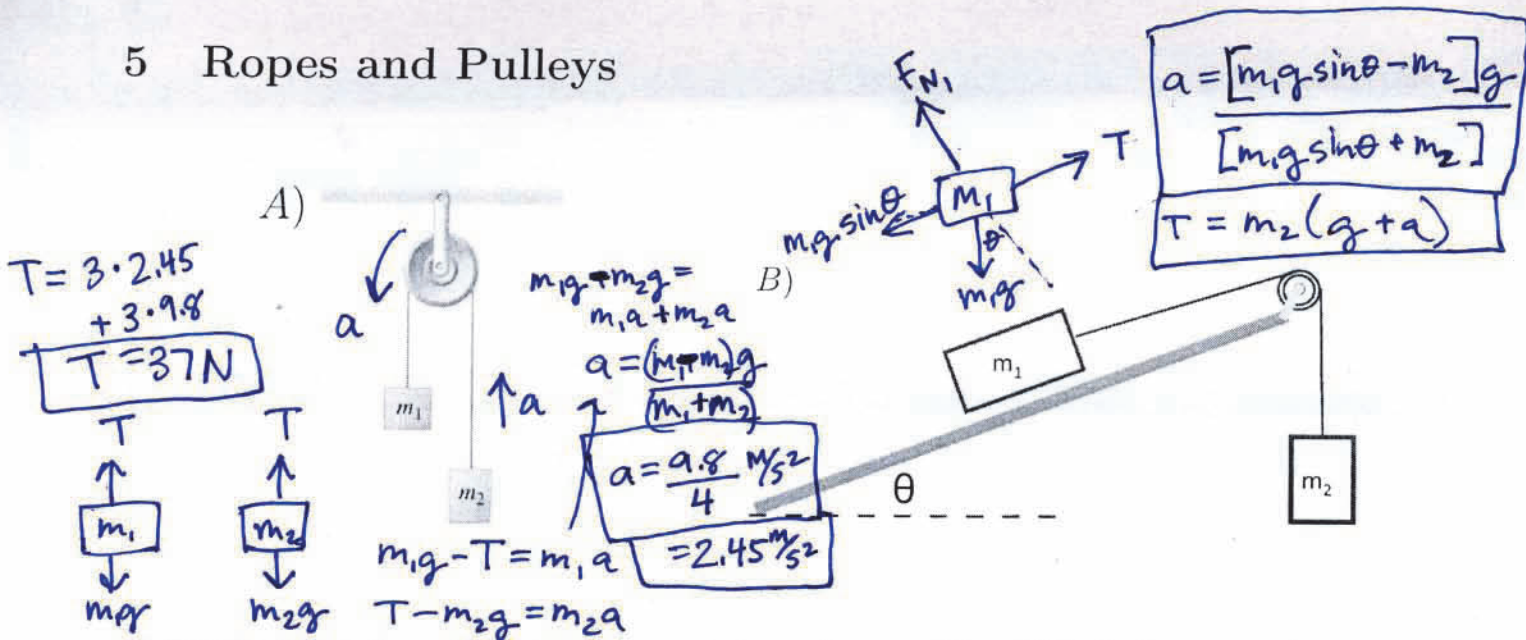 5 Ropes and Pulleys
A)
T = 3·2.45
+ 3·9.8
T = 37N
a
m₁
m₂
a
T
m₁
m₁g
T
m₂
m₂g
m₁g - m₂g =
m₁a + m₂a
a = (m₁-m₂)g
(m₁+m₂)
a = 9.8 m/s²
4
= 2.45 m/s²
m₁g - T = m₁a
T - m₂g = m₂a
B)
F_N₁
T
m₁
m₁g sinθ
θ
m₁g
a = [m₁g sinθ - m₂]g
[m₁g sinθ + m₂]
T = m₂(g + a)
m₁
θ
m₂